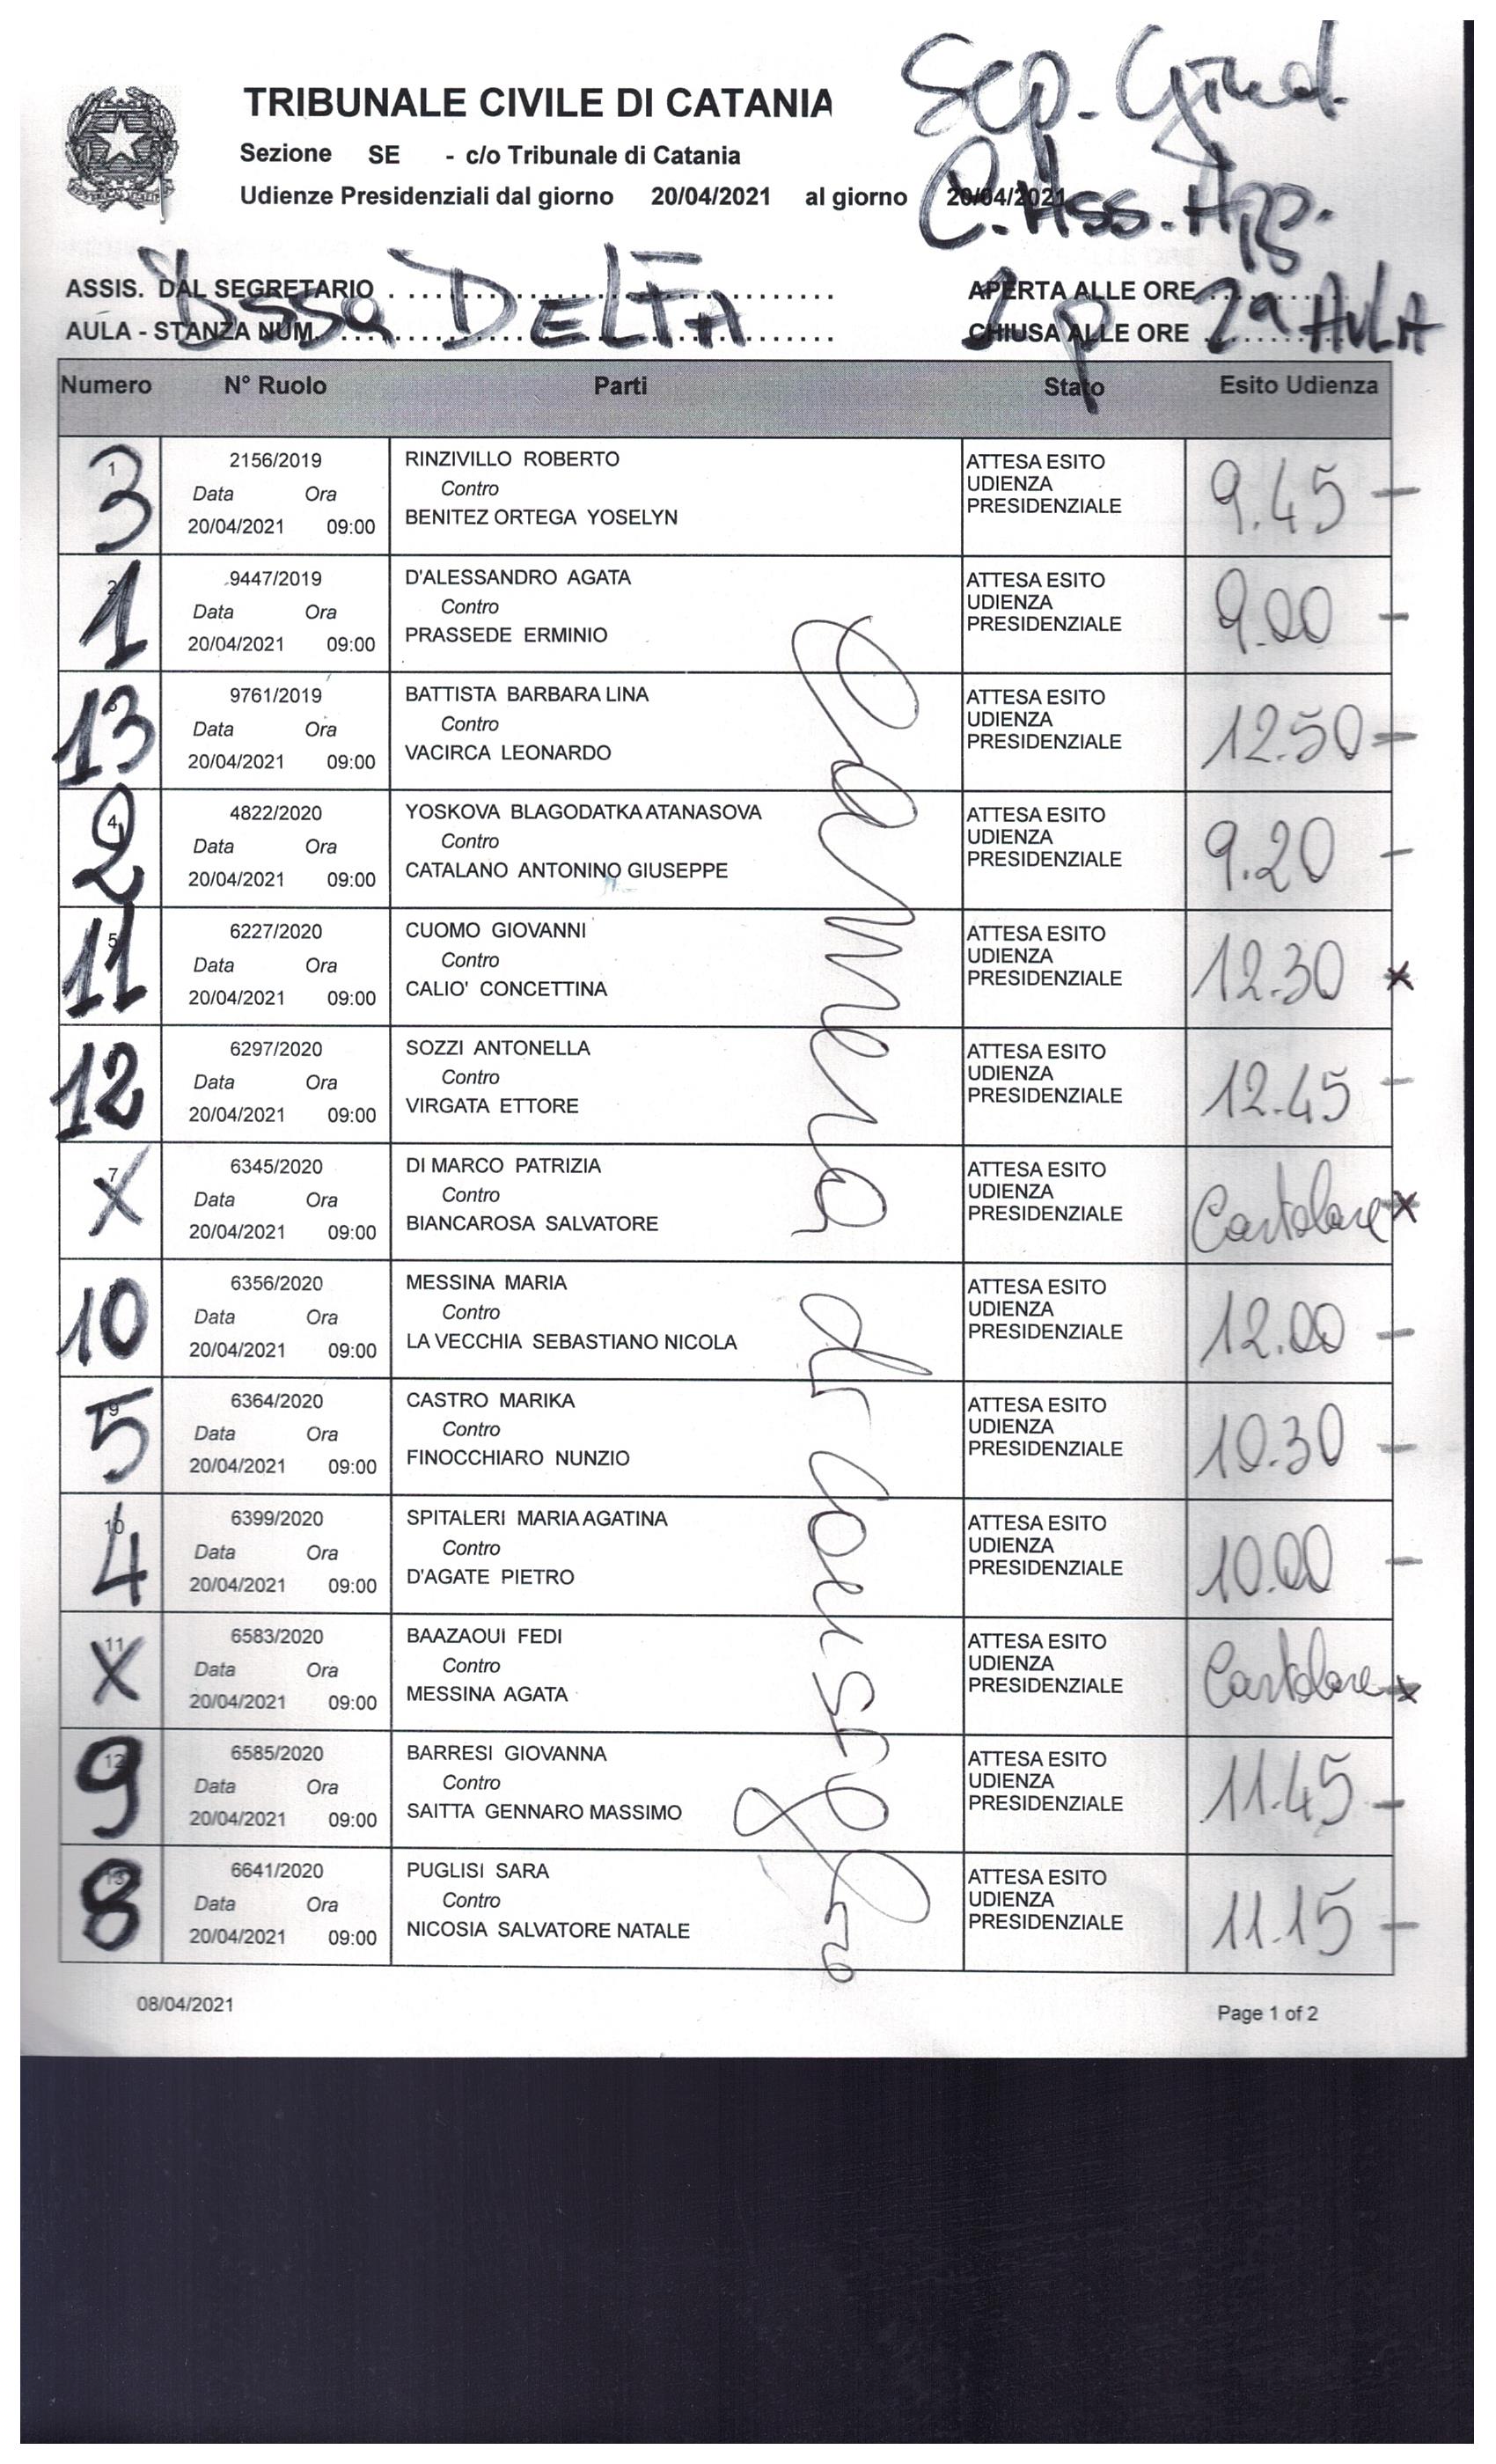 Sep. Giud.
C. Ass. App.
TRIBUNALE CIVILE DI CATANIA
Sezione SE - c/o Tribunale di Catania
Udienze Presidenziali dal giorno 20/04/2021 al giorno 20/04/2021
ASSIS. DAL SEGRETARIO APERTA ALLE ORE
D.ssa DELFA 1 p 2a AULA
AULA - STANZA NUM. CHIUSA ALLE ORE
Numero N° Ruolo Parti Stato Esito Udienza
1 3 2156/2019 RINZIVILLO ROBERTO ATTESA ESITO
Data Ora Contro UDIENZA 9.45 –
20/04/2021 09:00 BENITEZ ORTEGA YOSELYN PRESIDENZIALE
2 1 9447/2019 D'ALESSANDRO AGATA ATTESA ESITO
Data Ora Contro UDIENZA 9.00 –
20/04/2021 09:00 PRASSEDE ERMINIO PRESIDENZIALE
3 13 9761/2019 BATTISTA BARBARA LINA ATTESA ESITO
Data Ora Contro UDIENZA 12.50 –
20/04/2021 09:00 VACIRCA LEONARDO PRESIDENZIALE
4 2 4822/2020 YOSKOVA BLAGODATKA ATANASOVA ATTESA ESITO
Data Ora Contro UDIENZA 9.20 –
20/04/2021 09:00 CATALANO ANTONINO GIUSEPPE PRESIDENZIALE
5 11 6227/2020 CUOMO GIOVANNI ATTESA ESITO
Data Ora Contro UDIENZA 12.30 x
20/04/2021 09:00 CALIO' CONCETTINA PRESIDENZIALE
12 6297/2020 SOZZI ANTONELLA ATTESA ESITO
Data Ora Contro UDIENZA 12.45 –
20/04/2021 09:00 VIRGATA ETTORE PRESIDENZIALE
7 X 6345/2020 DI MARCO PATRIZIA ATTESA ESITO
Data Ora Contro UDIENZA Cartolare x
20/04/2021 09:00 BIANCAROSA SALVATORE PRESIDENZIALE
10 6356/2020 MESSINA MARIA ATTESA ESITO
Data Ora Contro UDIENZA 12.00 –
20/04/2021 09:00 LA VECCHIA SEBASTIANO NICOLA PRESIDENZIALE
9 5 6364/2020 CASTRO MARIKA ATTESA ESITO
Data Ora Contro UDIENZA 10.30 –
20/04/2021 09:00 FINOCCHIARO NUNZIO PRESIDENZIALE
10 4 6399/2020 SPITALERI MARIA AGATINA ATTESA ESITO
Data Ora Contro UDIENZA 10.00 –
20/04/2021 09:00 D'AGATE PIETRO PRESIDENZIALE
11 X 6583/2020 BAAZAOUI FEDI ATTESA ESITO
Data Ora Contro UDIENZA Cartolare x
20/04/2021 09:00 MESSINA AGATA PRESIDENZIALE
12 9 6585/2020 BARRESI GIOVANNA ATTESA ESITO
Data Ora Contro UDIENZA 11.45 –
20/04/2021 09:00 SAITTA GENNARO MASSIMO PRESIDENZIALE
13 8 6641/2020 PUGLISI SARA ATTESA ESITO
Data Ora Contro UDIENZA 11.15 –
20/04/2021 09:00 NICOSIA SALVATORE NATALE PRESIDENZIALE
Camera di Consiglio
08/04/2021 Page 1 of 2